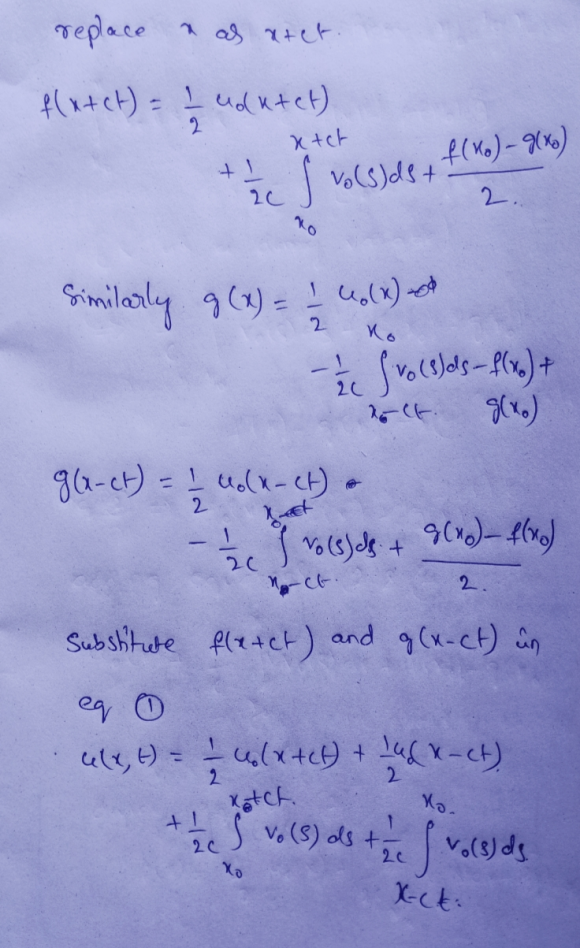 replace x as x+ct.
f(x+ct) = 1/2 u₀(x+ct)
+ 1/2c ∫_{x₀}^{x+ct} v₀(s)ds + (f(x₀) - g(x₀))/2.
Similarly g(x) = 1/2 u₀(x)
- 1/2c ∫_{x₀-ct.}^{x₀} v₀(s)ds - f(x₀) +
g(x₀)
g(x-ct) = 1/2 u₀(x-ct)
- 1/2c ∫_{x-ct.} v₀(s)ds + (g(x₀) - f(x₀))/2.
Substitute f(x+ct) and g(x-ct) in
eq ①
u(x,t) = 1/2 u₀(x+ct) + 1/2 u₀(x-ct)
+ 1/2c ∫_{x₀}^{x+ct.} v₀(s) ds + 1/2c ∫_{x-ct.}^{x₀} v₀(s) ds